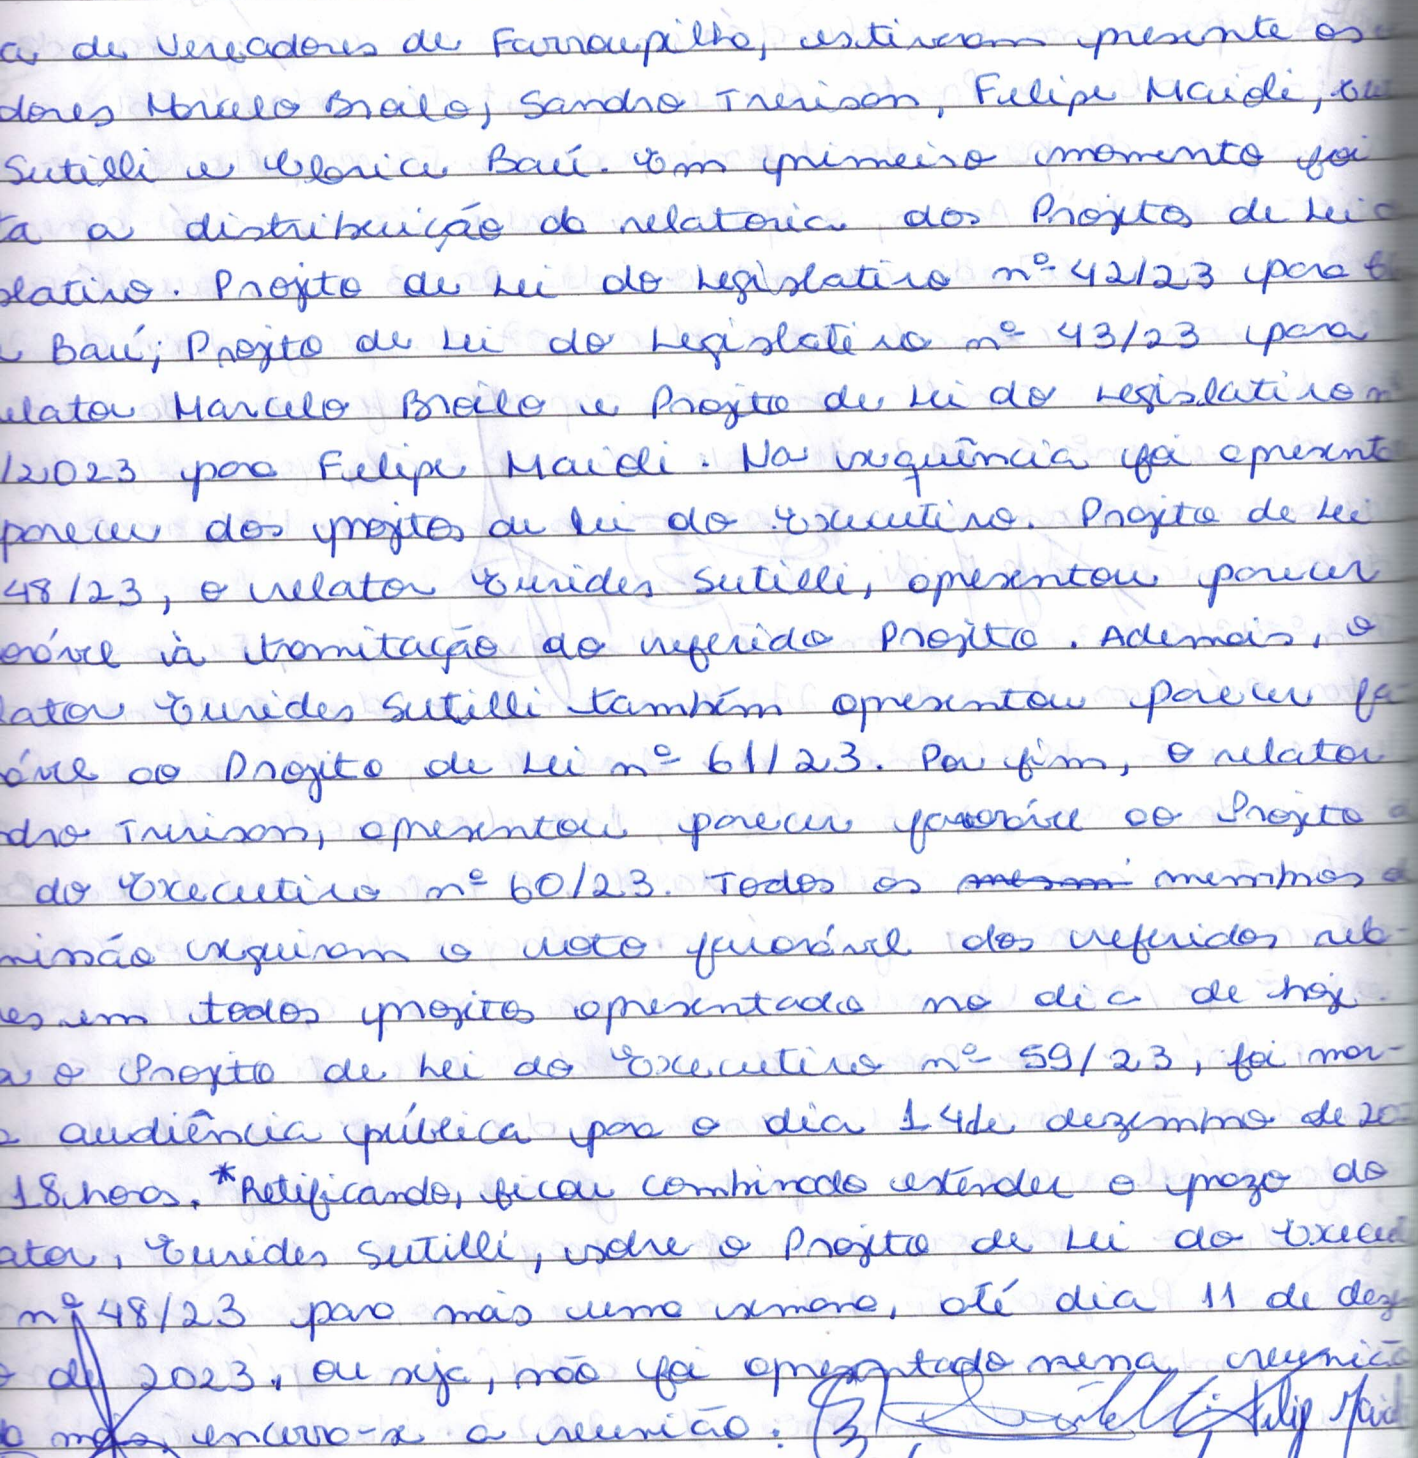 a de Vereadores de Farroupilha, estiveram presente os
dores Marcelo Broilo, Sandro Trevison, Felipe Maioli, Eu
Sutilli e Clarice Baú. Em primeiro momento foi
ta a distribuição da relatoria dos Projetos de Lei
slativo. Projeto de Lei do Legislativo nº 42/23 para
Baú; Projeto de Lei do Legislativo nº 43/23 para
elator Marcelo Broilo e Projeto de Lei do Legislativo nº
/2023 para Felipe Maioli. Na sequência foi apresenta
parecer dos projetos de lei do Executivo. Projeto de Lei
48/23, o relator Eurides Sutilli, apresentou parecer
orável à tramitação do referido Projeto. Ademais, o
lator Eurides Sutilli também apresentou parecer fa-
ável ao Projeto de Lei nº 61/23. Por fim, o relator
dro Trevison, apresentou parecer favorável ao Projeto
do Executivo nº 60/23. Todos os membros d
missão seguiram o voto favorável dos referidos rela-
es em todos projetos apresentado no dia de hoje.
a o Projeto de Lei do Executivo nº 59/23, foi mar-
audiência pública para o dia 14 de dezembro de 20
18 horas. *Retificando, ficou combinado estender o prazo do
ator, Eurides Sutilli, sobre o Projeto de Lei do Execut
nº 48/23 para mais uma semana, até dia 11 de dez
o de 2023, ou seja, não foi apresentado nessa reunião
mais, encerro-se a reunião. Felip Maioli